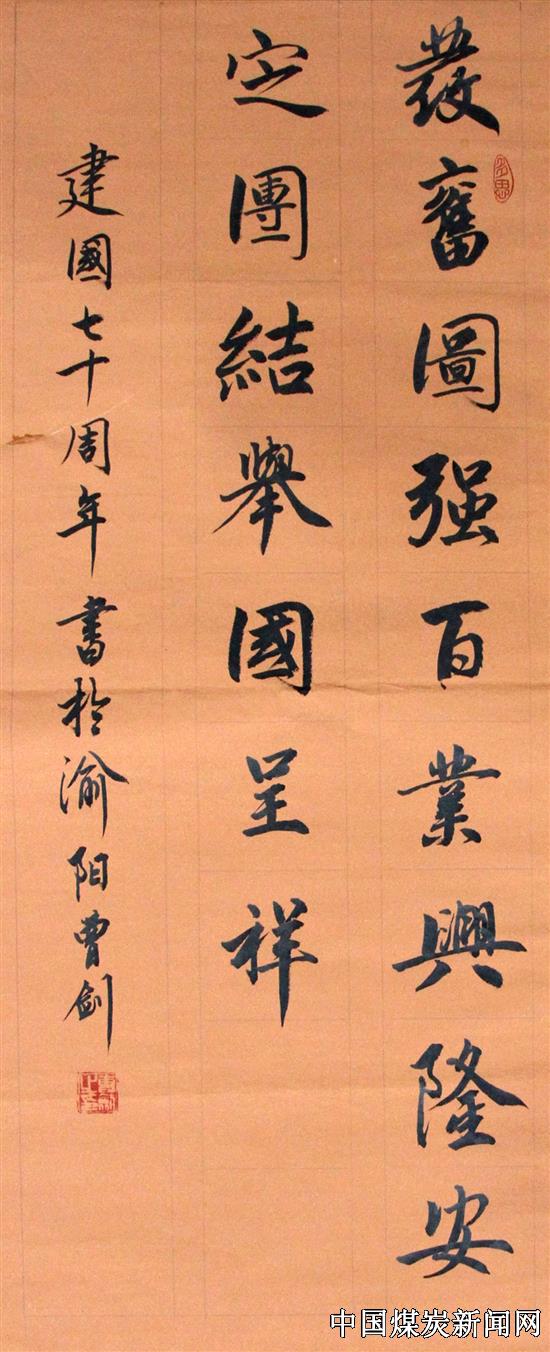 發奮圖强百業興隆安
定團結舉國呈祥
建國七十周年書於渝阳曹劍
中国煤炭新闻网